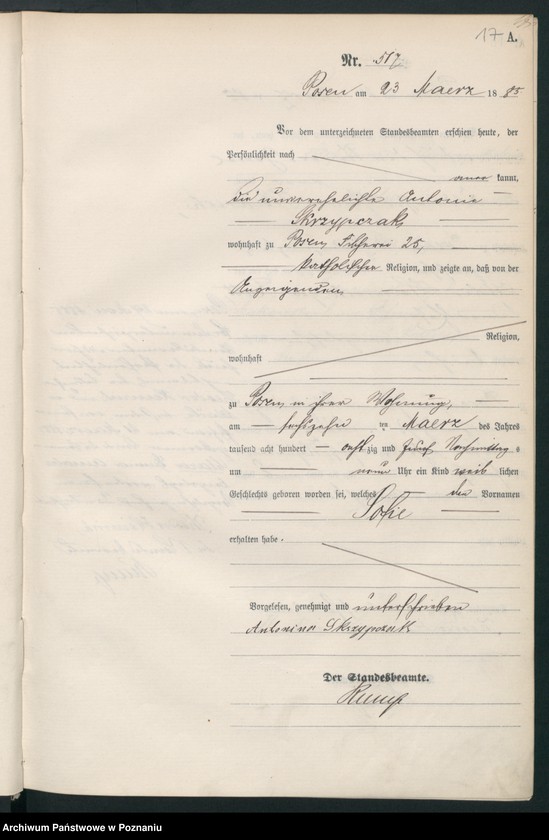 17 A.
Nr. 517.
Posen am 23 Maerz 18 85
Vor dem unterzeichneten Standesbeamten erschien heute, der
Persönlichkeit nach
kannt,
die unverehelichte Antonie
Skrzypczak
wohnhaft zu Posen, Fischerei 25,
katholischer Religion, und zeigte an, daß von der
Anzeigenden,
Religion,
wohnhaft
zu Posen in ihrer Wohnung,
am sechszehn ten Maerz des Jahres
tausend acht hundert achtzig und fuenf Nachmittag s
um neun Uhr ein Kind weib lichen
Geschlechts geboren worden sei, welches den Vornamen
Sofie
erhalten habe.
Vorgelesen, genehmigt und unterschrieben
Antonina Skrzypczak
Der Standesbeamte.
Archiwum Państwowe w Poznaniu